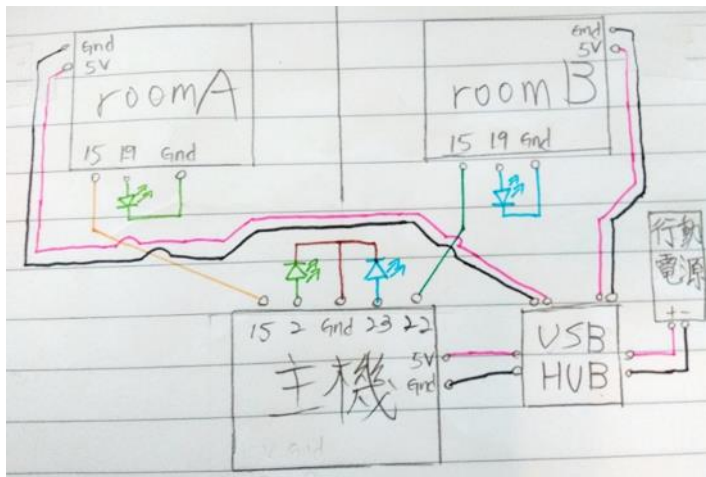 Gnd
5V
roomA
15 19 Gnd
Gnd
5V
room B
15 19 Gnd
行動
電源
+ -
15 2 Gnd 23 22
主機
5V
Gnd
USB
HUB